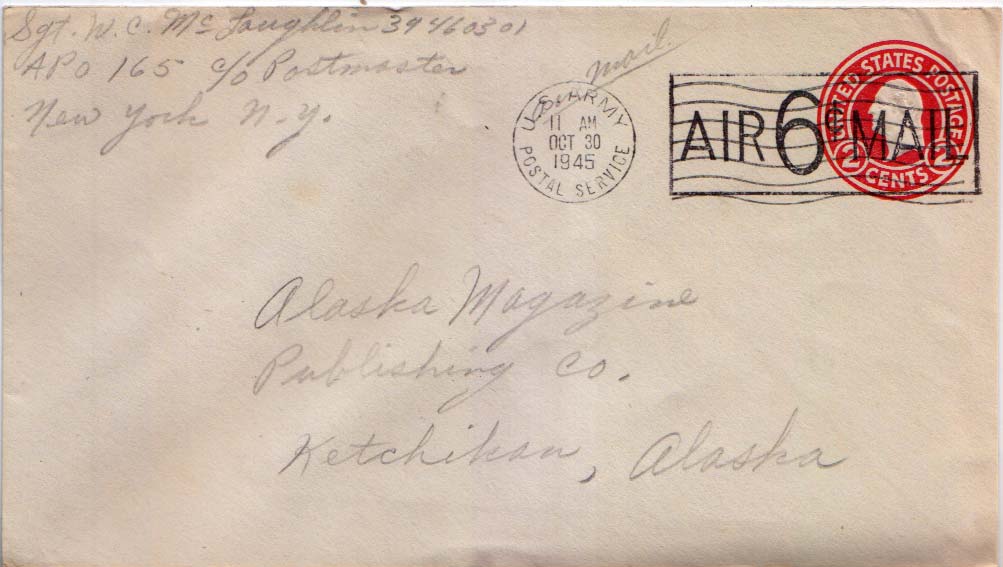 Sgt. W. C. McLaughlin 39460301
APO 165 c/o Postmaster
New York N.Y.
mail.
U.S. ARMY
11 AM
OCT 30
1945
POSTAL SERVICE
AIR 6¢ MAIL
UNITED STATES POSTAGE
2 CENTS 2
Alaska Magazine
Publishing Co.
Ketchikan, Alaska